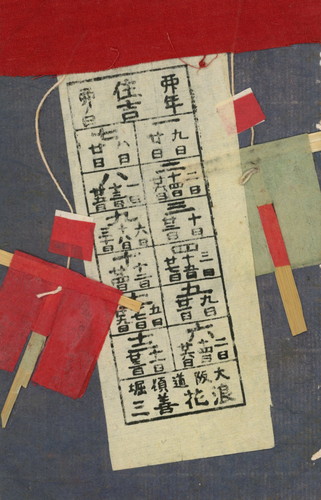 卯年
住吉
卯日
一 九日 廿日
二 二日 十四日 廿六日
三 十日 廿二日
四 三日 十五日 廿七日
五 九日
六 二日 十四日 廿六日
七 八日 廿日
八 一日
九 六日 十八日 三十日
十 十二日 廿四日
五日 十七日 廿九日
十二 十一日
大阪道頓堀
浪花善三